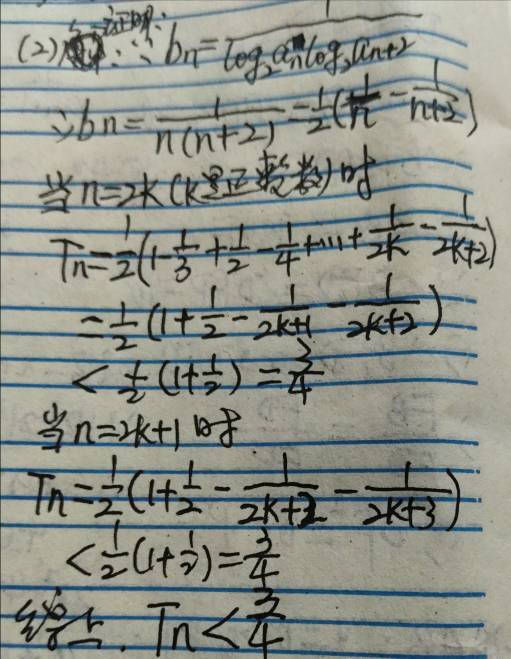 (2) 证明: ∵ bn = 1/(log₂an·log₂an+2)
∴ bn = 1/(n(n+2)) = 1/2(1/n - 1/(n+2))
当 n=2k (k是正整数) 时
Tn = 1/2(1 - 1/3 + 1/2 - 1/4 + ... + 1/2k - 1/(2k+2))
= 1/2(1 + 1/2 - 1/(2k+1) - 1/(2k+2))
< 1/2(1 + 1/2) = 3/4
当 n=2k+1 时
Tn = 1/2(1 + 1/2 - 1/(2k+2) - 1/(2k+3))
< 1/2(1 + 1/2) = 3/4
综上. Tn < 3/4